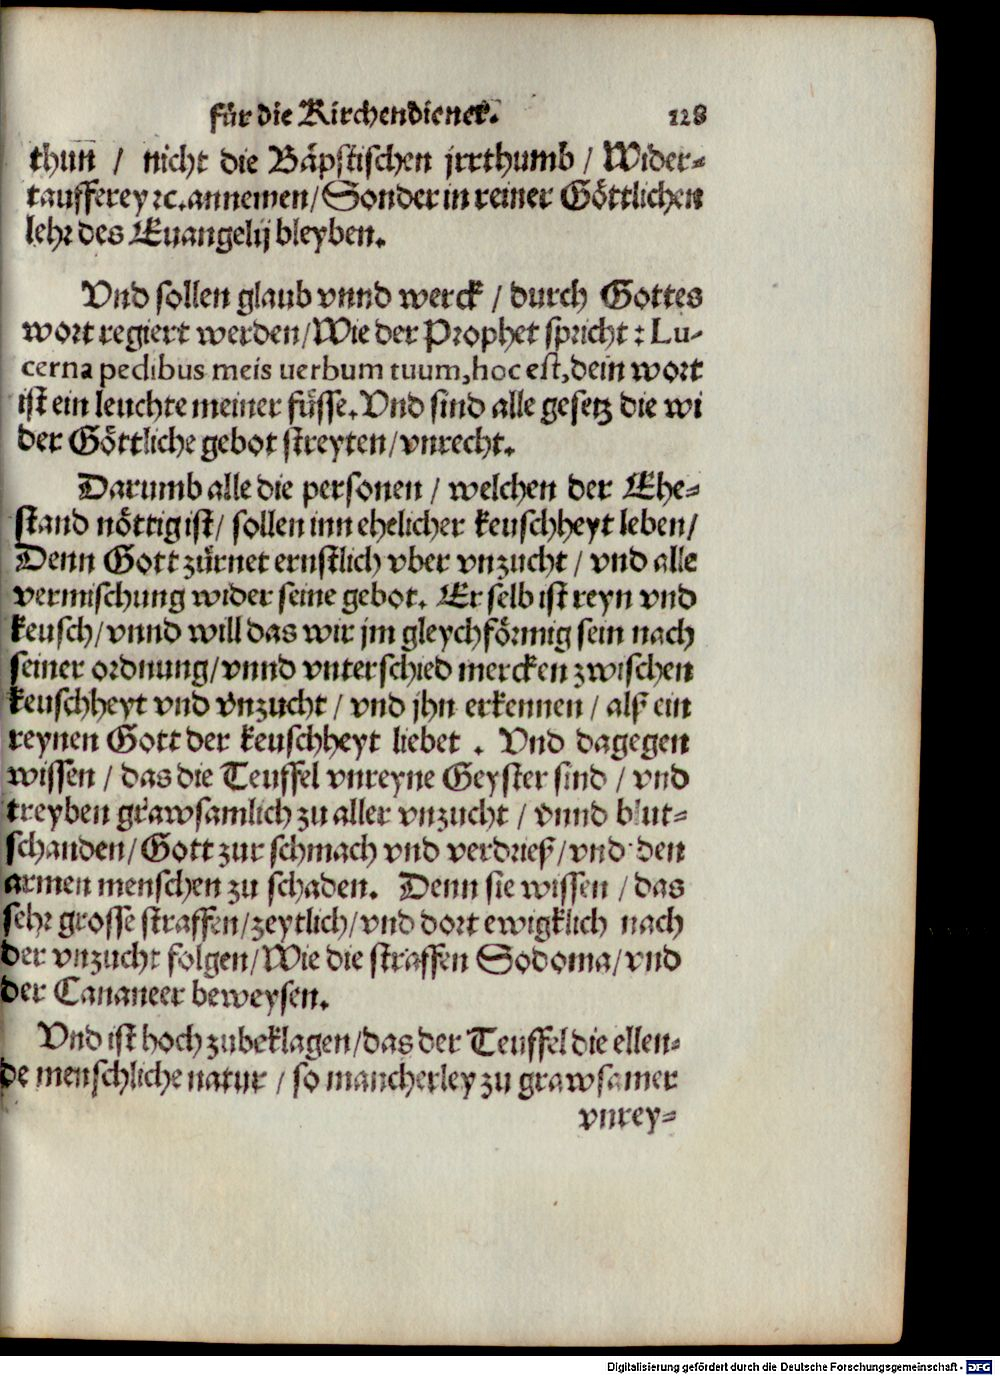 für die Kirchendiener. 128
thun / nicht die Bäpstischen jrrthumb / Wider-
taufferey ꝛc. annemen / Sonder in reiner Göttlichen
lehr des Euangelij bleyben.
Vnd sollen glaub vnnd werck / durch Gottes
wort regiert werden / Wie der Prophet spricht: Lu-
cerna pedibus meis uerbum tuum, hoc est, dein wort
ist ein leuchte meiner füsse. Vnd sind alle gesetz die wi
der Göttliche gebot streyten / vnrecht.
Darumb alle die personen / welchen der Ehe-
stand nöttig ist / sollen inn ehelicher keuschheyt leben /
Denn Gott zürnet ernstlich vber vnzucht / vnd alle
vermischung wider seine gebot. Er selb ist reyn vnd
keusch / vnnd will das wir jm gleychförmig sein nach
seiner ordnung / vnnd vnterschied mercken zwischen
keuschheyt vnd vnzucht / vnd jhn erkennen / alß ein
reynen Gott der keuschheyt liebet. Vnd dagegen
wissen / das die Teuffel vnreyne Geyster sind / vnd
treyben grawsamlich zu aller vnzucht / vnnd blut-
schanden / Gott zur schmach vnd verdrieß / vnd den
armen menschen zu schaden. Denn sie wissen / das
sehr grosse straffen / zeytlich / vnd dort ewigklich nach
der vnzucht folgen / Wie die straffen Sodoma / vnd
der Cananeer beweysen.
Vnd ist hoch zubeklagen / das der Teuffel die ellen-
de menschliche natur / so mancherley zu grawsamer
vnrey-
Digitalisierung gefördert durch die Deutsche Forschungsgemeinschaft - DFG